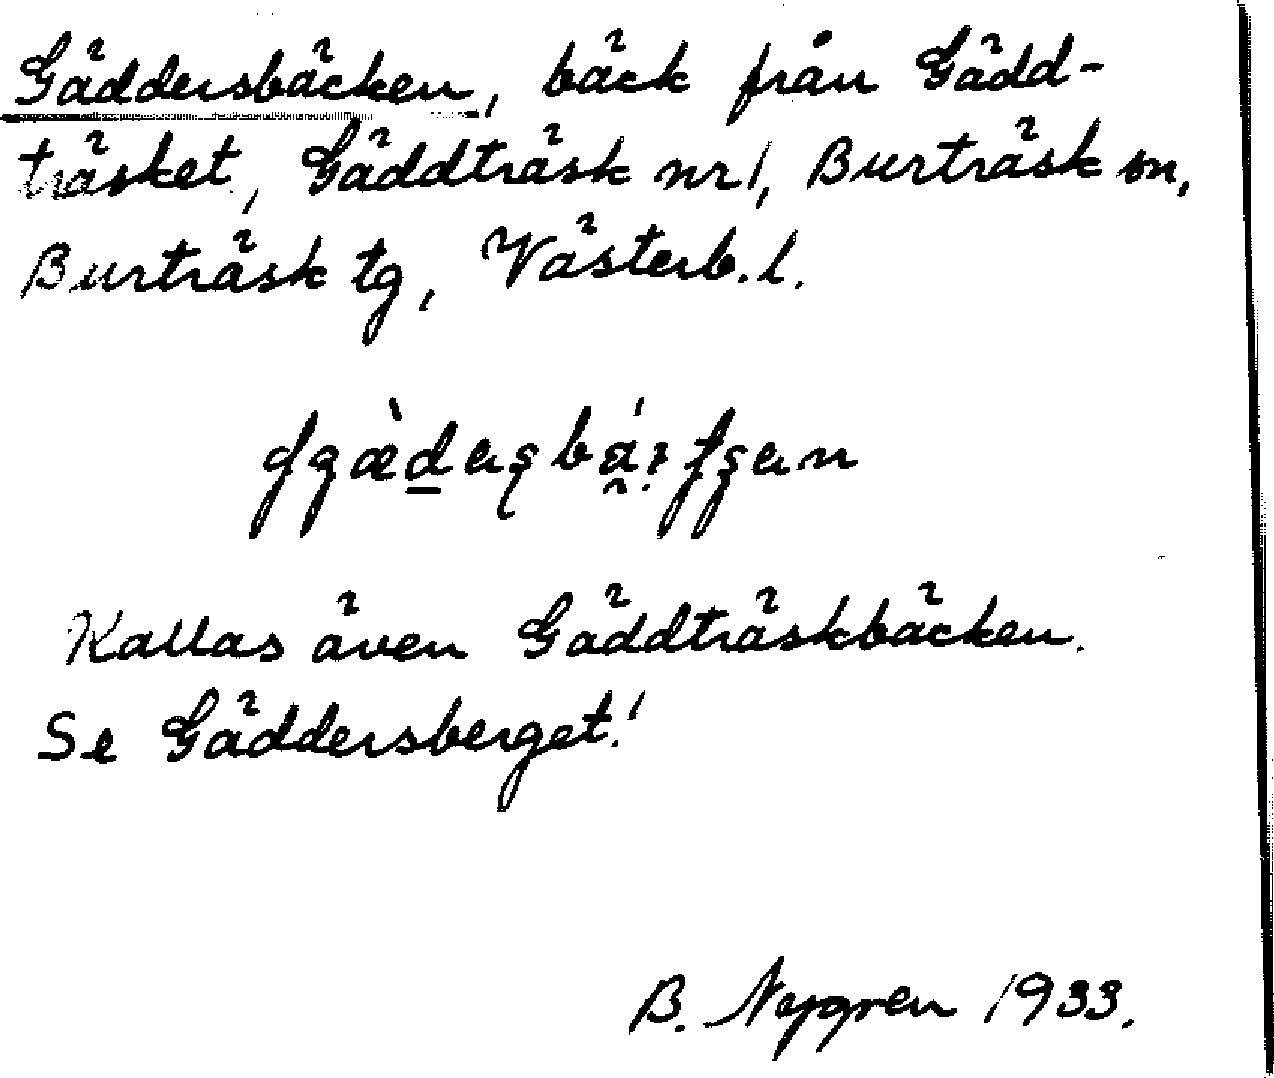 Gäddersbäcken, bäck från Gädd-
träsket, Gäddträsk nr 1, Burträsk sn,
Burträsk tg, Västerb. l.
Kallas även Gäddträskbäcken.
Se Gäddersberget!
B. Nygren 1933.